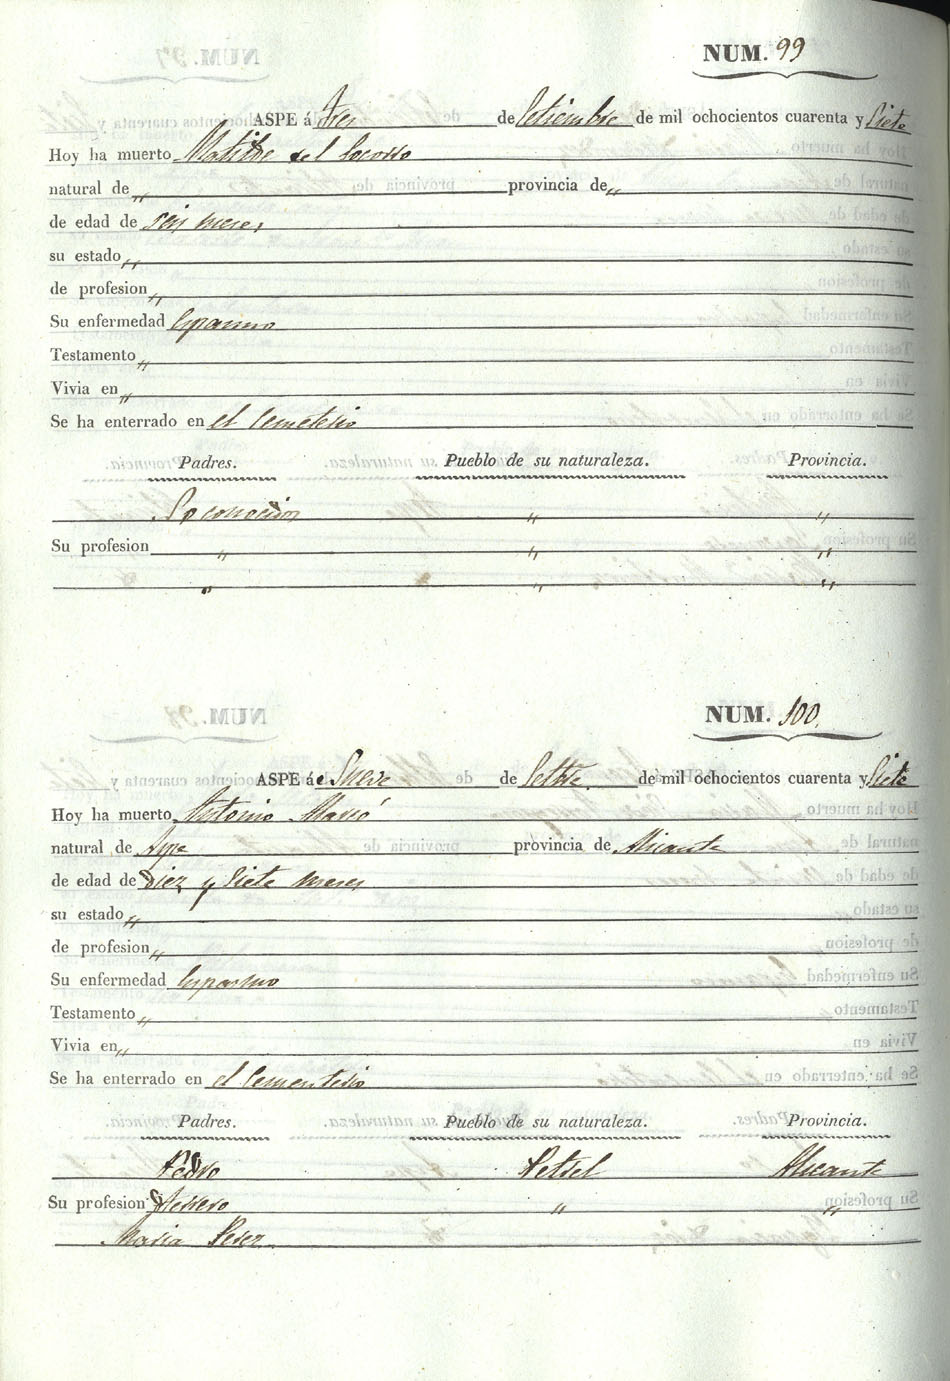 NUM. 99
ASPE á Tres de Setiembre de mil ochocientos cuarenta y Siete
Hoy ha muerto Matilde del Socorro
natural de " provincia de "
de edad de seis meses
su estado "
de profesion "
Su enfermedad Espasmo
Testamento "
Vivia en "
Se ha enterrado en el Cementerio
Padres. Pueblo de su naturaleza. Provincia.
" "
Su profesion " " "
" " "
NUM. 100.
ASPE á Nueve de Setbre. de mil ochocientos cuarenta y Siete
Hoy ha muerto Antonio
natural de Aspe provincia de Alicante
de edad de diez y Siete meses
su estado "
de profesion "
Su enfermedad Espasmo
Testamento "
Vivia en "
Se ha enterrado en el Cementerio
Padres. Pueblo de su naturaleza. Provincia.
Pedro Petrel Alicante
Su profesion Herrero " "
Maria Perez